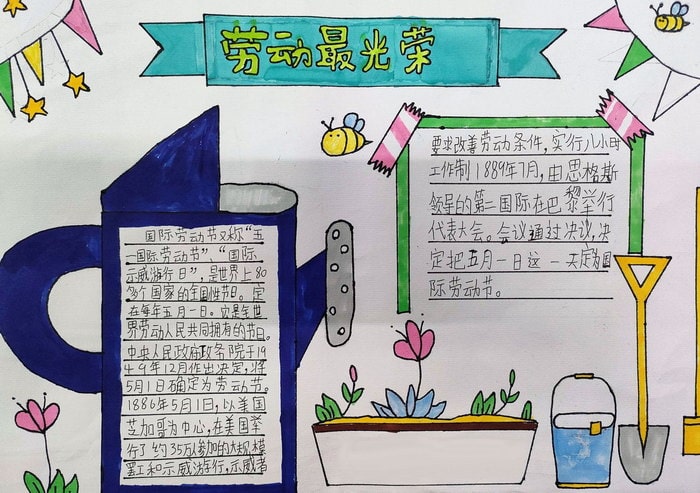 劳动最光荣
国际劳动节又称“五
一国际劳动节”、“国际
示威游行日”，是世界上80
多个国家的全国性节日。定
在每年五月一日。它是全世
界劳动人民共同拥有的节日。
中央人民政府政务院于19
49年12月作出决定，将
5月1日确定为劳动节。
1886年5月1日，以美国
芝加哥为中心，在美国举
行了约35万人参加的大规模
罢工和示威游行，示威者
要求改善劳动条件，实行八小时
工作制1889年7月，由恩格斯
领导的第二国际在巴黎举行
代表大会。会议通过决议，决
定把五月一日这一天定为国
际劳动节。